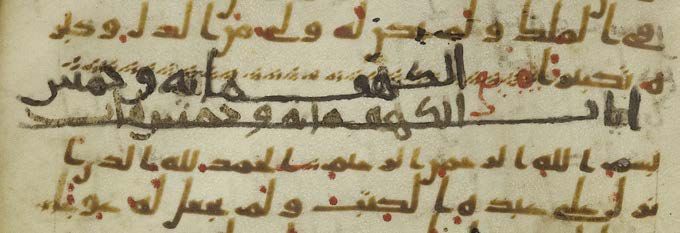 فى الملك ولم يكن له ولى من الذل وكبر
ه تكبيرا الكهف مائه وخمس
ايات الكهف مائه وخمس ايات
بسم الله الرحمن الرحيم الحمد لله الذى ا
نزل على عبده الكتب ولم يجعل له عوجا